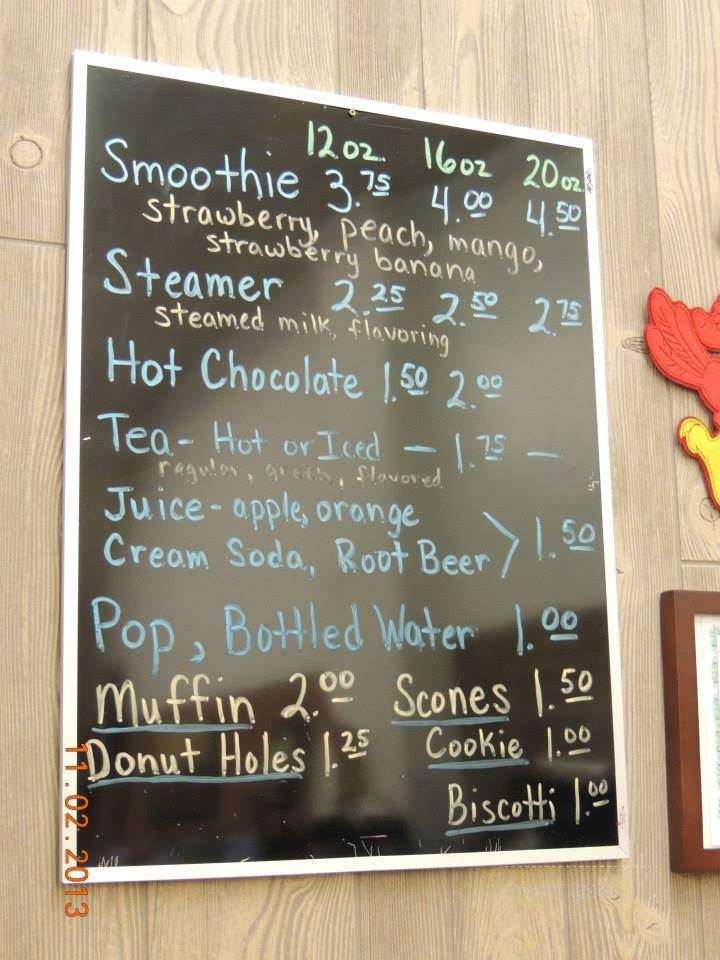 12oz. 16oz 20oz.
Smoothie 3.75 4.00 4.50
strawberry, peach, mango,
strawberry banana
Steamer 2.25 2.50 2.75
steamed milk, flavoring
Hot Chocolate 1.50 2.00
Tea - Hot or Iced - 1.75 -
regular, green, flavored
Juice - apple, orange
Cream Soda, Root Beer > 1.50
Pop, Bottled Water 1.00
Muffin 2.00 Scones 1.50
Donut Holes 1.25 Cookie 1.00
Biscotti 1.00
11.02.2013